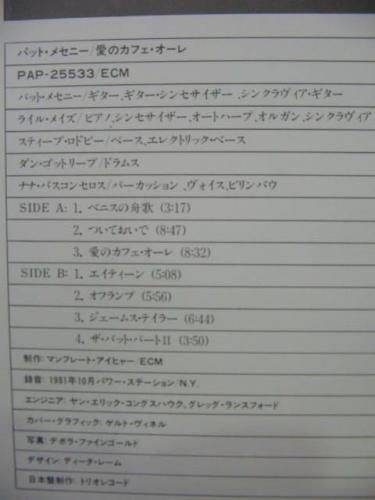 パット・メセニー/愛のカフェ・オーレ
PAP-25533/ECM
パット・メセニー/ギター、ギター・シンセサイザー、シンクラヴィア・ギター
ライル・メイズ/ピアノ、シンセサイザー、オートハープ、オルガン、シンクラヴィア
スティーブ・ロドビー/ベース、エレクトリック・ベース
ダン・ゴットリーブ/ドラムス
ナナ・バスコンセロス/パーカッション、ヴォイス、ビリンバウ
SIDE A: 1. ベニスの舟歌 (3:17)
2. ついておいで (8:47)
3. 愛のカフェ・オーレ (8:32)
SIDE B: 1. エイティーン (5:08)
2. オフランプ (5:56)
3. ジェームス・テイラー (6:44)
4. ザ・バット・パートII (3:50)
制作: マンフレート・アイヒャー/ECM
録音: 1981年10月パワー・ステーション/N.Y.
エンジニア: ヤン・エリック・コングスハウク、グレッグ・ランスフォード
カバー・グラフィック: ゲルト・ヴィネル
写真: デボラ・ファインゴールド
デザイン: ディータ・レーム
日本盤制作: トリオレコード